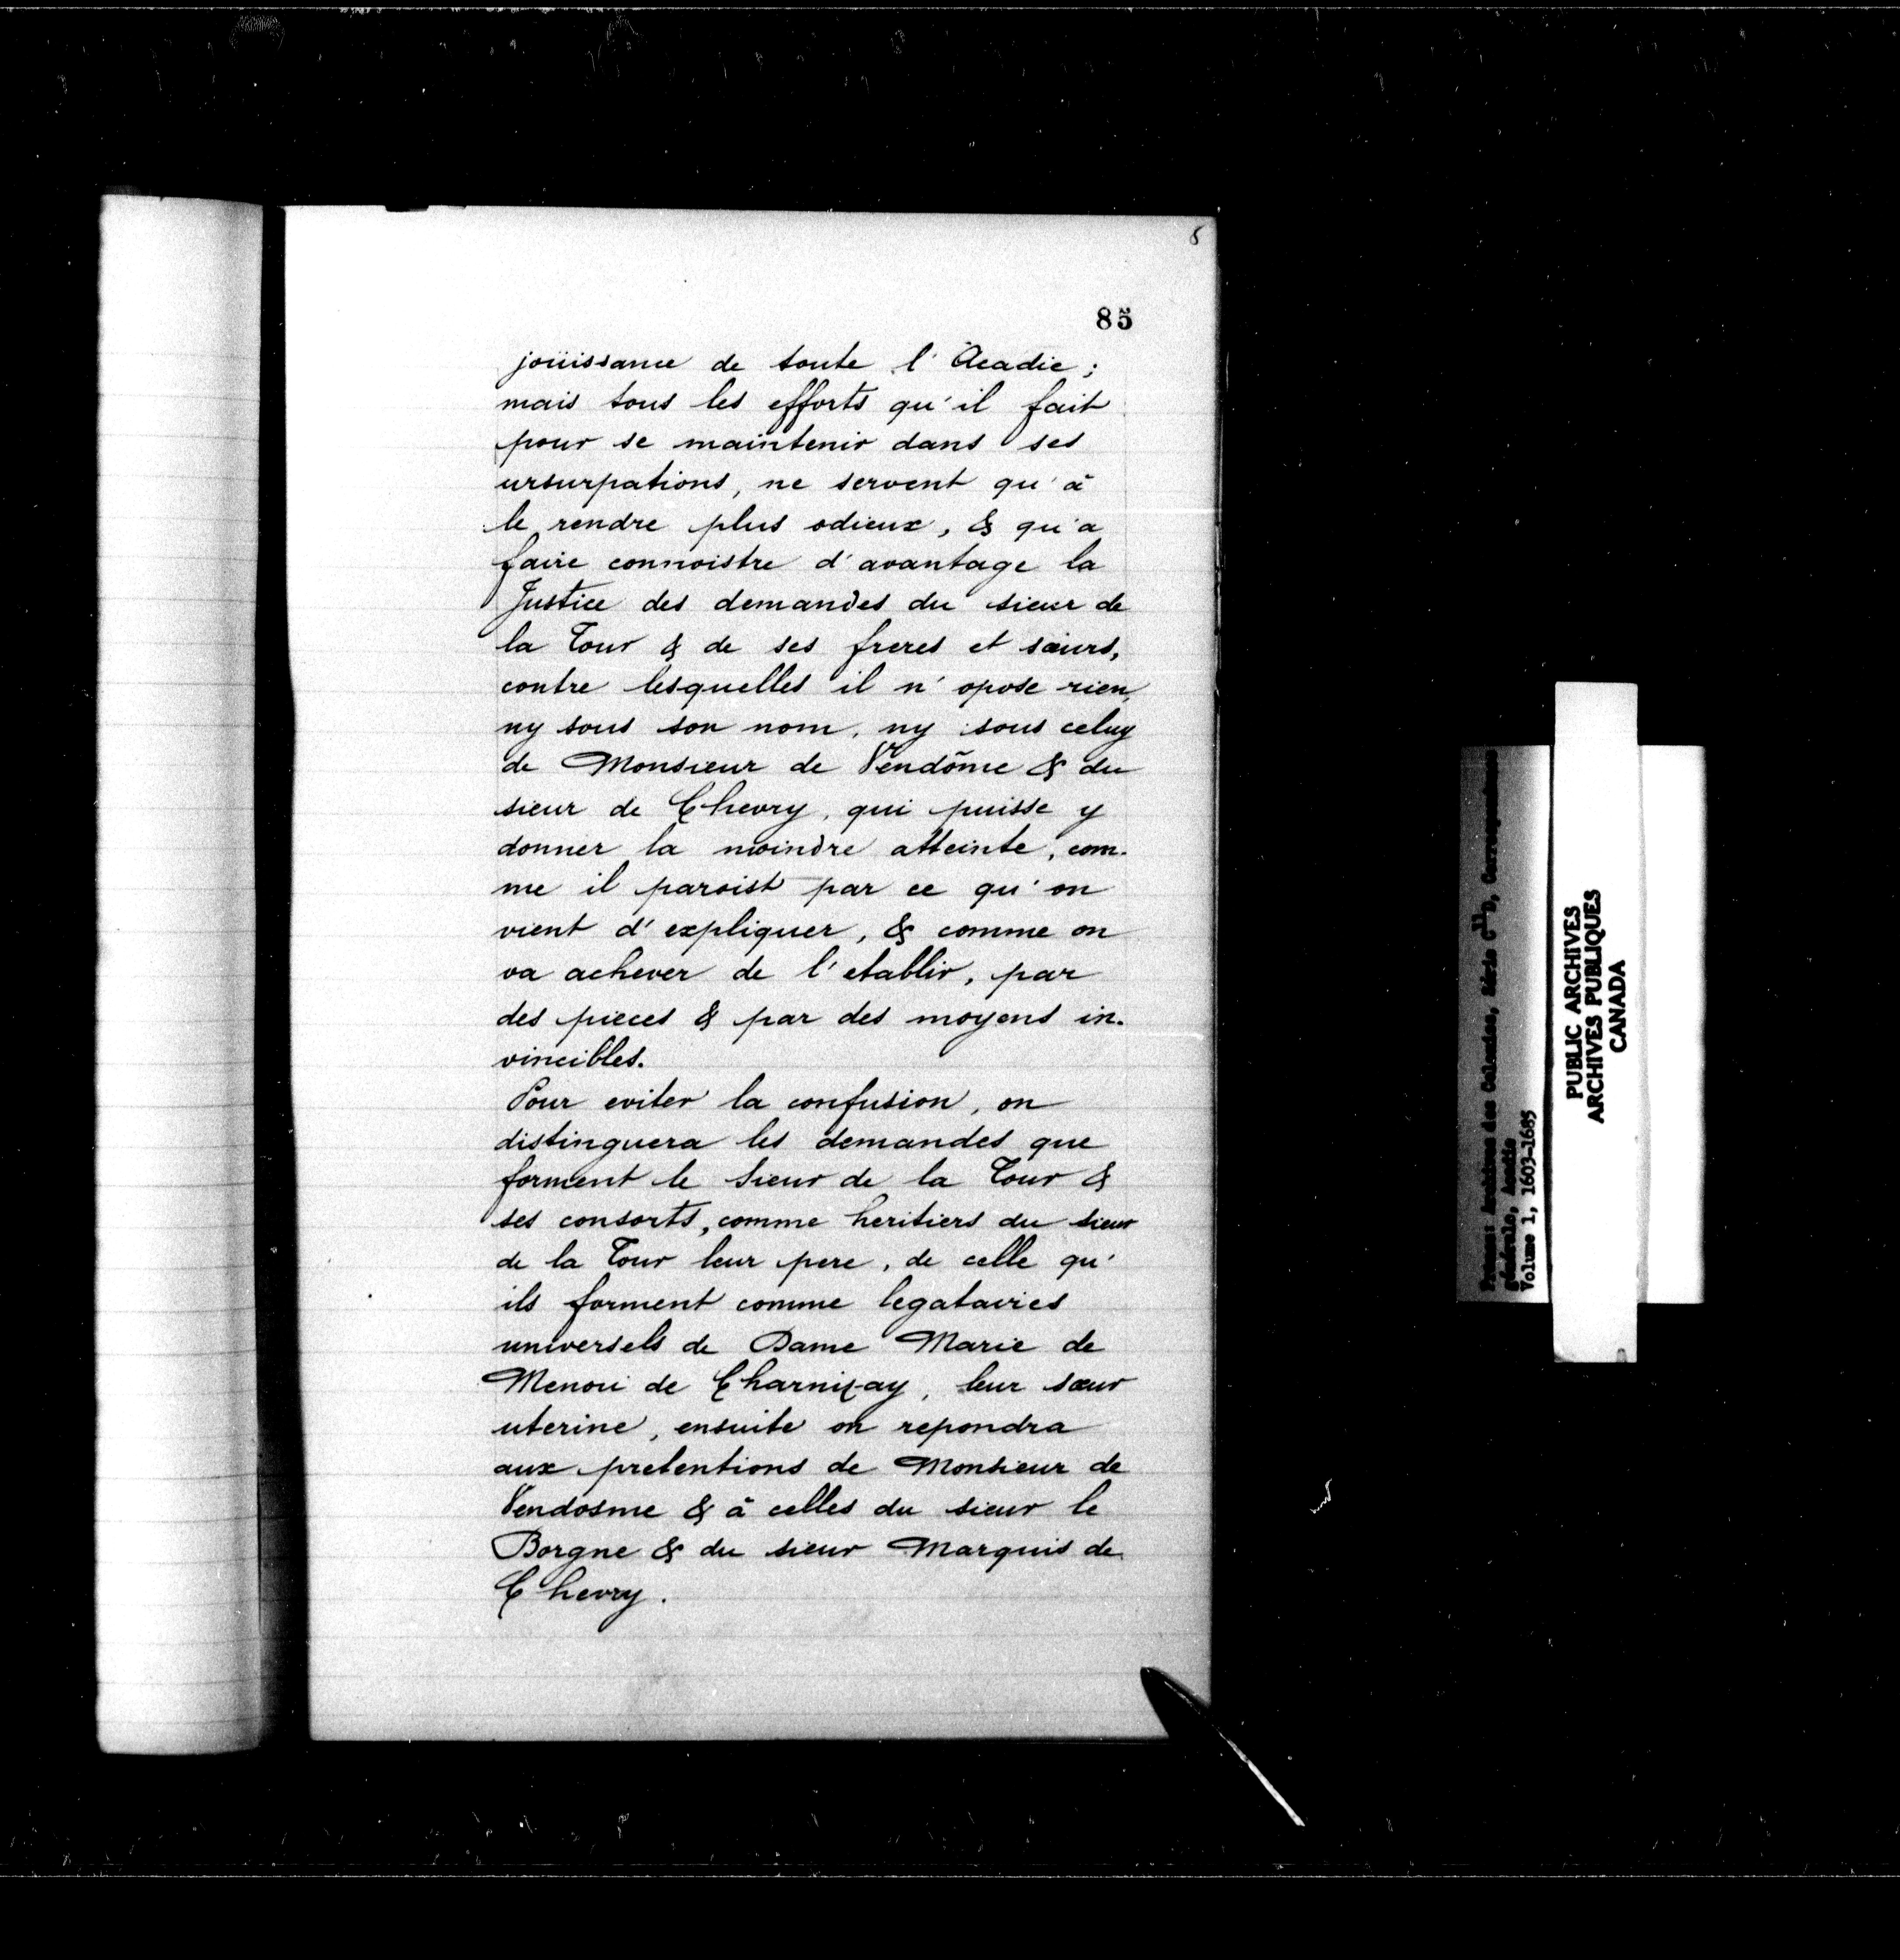 8
85
joüissance de toute l'Acadie;
mais tous les efforts qu'il fait
pour se maintenir dans ses
ursurpations, ne servent qu'à
le rendre plus odieux, & qu'a
faire connoistre d'avantage la
Justice des demandes du sieur de
la Tour & de ses freres et sœurs,
contre lesquelles il n'opose rien,
ny sous son nom, ny sous celuy
de Monsieur de Vendôme & du
sieur de Chevry, qui puisse y
donner la moindre atteinte, com-
me il paroist par ce qu'on
vient d'expliquer, & comme on
va achever de l'etablir, par
des pieces & par des moyens in-
vincibles.
Pour eviter la confusion, on
distinguera les demandes que
forment le Sieur de la Tour &
ses consorts, comme heritiers du sieur
de la Tour leur pere, de celle qu'
ils forment comme legataires
universels de Dame Marie de
Menou de Charnizay, leur sœur
uterine, ensuite on repondra
aux pretentions de Monsieur de
Vendosme & à celles du sieur le
Borgne & du sieur Marquis de
Chevry.
PUBLIC ARCHIVES
ARCHIVES PUBLIQUES
CANADA
France: Archives des Colonies, Série C11D, Correspondance
générale, Acadie
Volume 1, 1603-1685